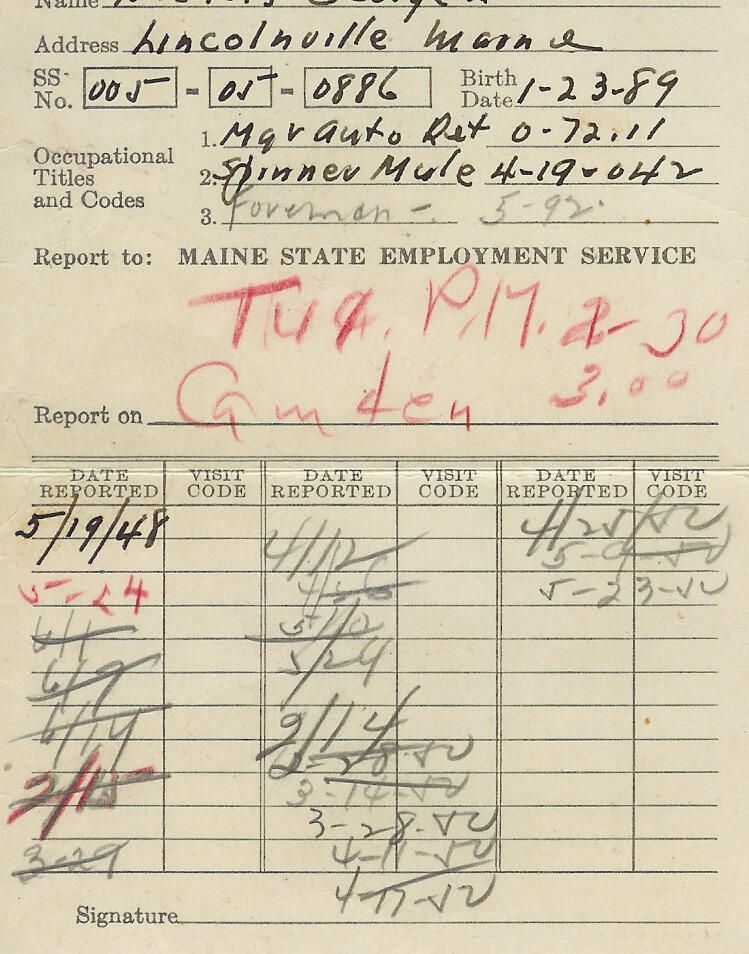 Name
Address Lincolnville Maine
SS No. 005 - 05 - 0886 Birth Date 1-23-89
Occupational Titles and Codes
1. Mgr Auto Ret 0-72.11
2. Spinner Mule 4-19-042
3. Foreman - 5-92.
Report to: MAINE STATE EMPLOYMENT SERVICE
P.M. 2-30
3.00
Report on Camden
DATE REPORTED VISIT CODE DATE REPORTED VISIT CODE DATE REPORTED VISIT CODE
5/19/48 4/12 4/25/52
5-9-52
5-24 5-23-52
6/1 5/10
6/9 5/24
6/14 2/14
2-28-52
2/15 3-14-52
3-28-52
3-29 4-11-52
4-17-52
Signature